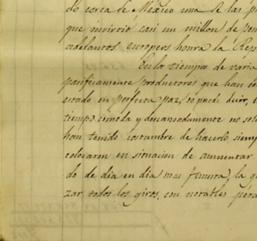 do cerca de México una de las p
que invirtió casi un millon de pe
adelantos europeos honra la Rep
En los tiempos de varia
pacificamente productores que han de
estado en perfecta paz, se puede decir,
tiempo comoda y descansadamente no solo
han tenido costumbre de hacerlo siemp
colocaron en situacion de aumentar
do de dia en dia mas firmeza, la q
zar todos los giros, con notables